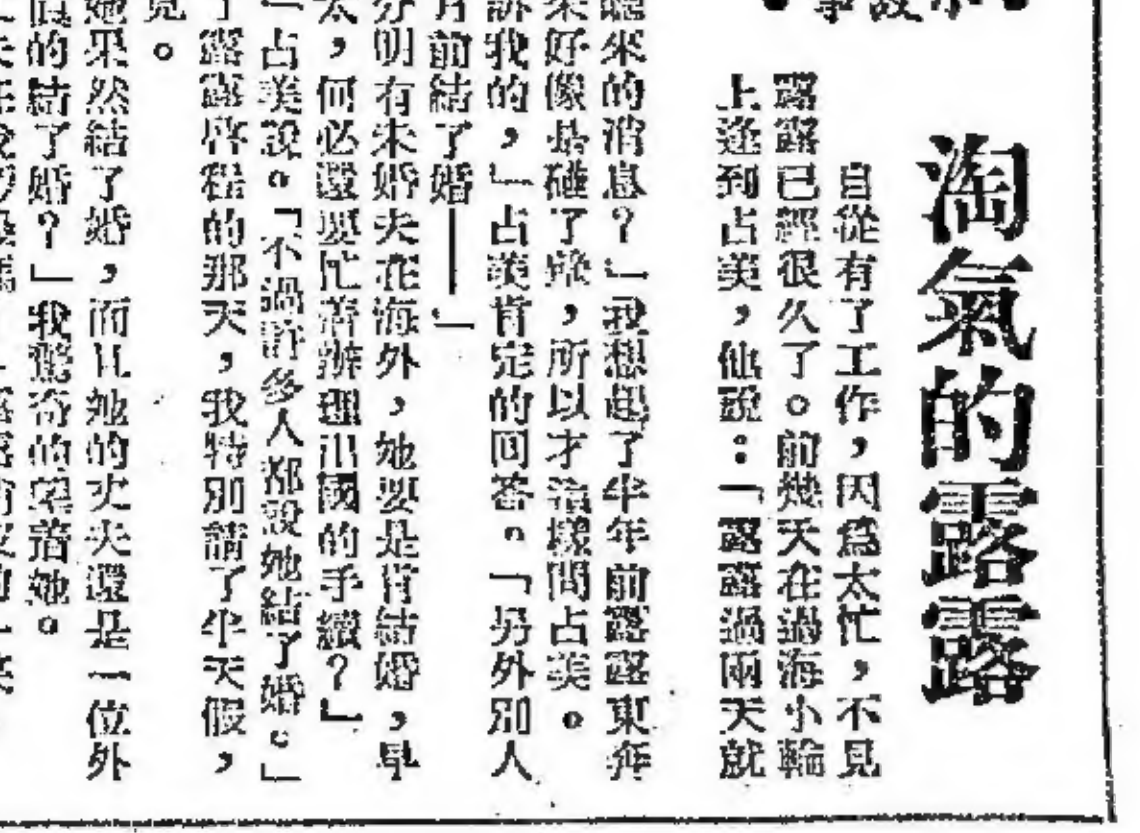 淘氣的露露
自從有了工作,因爲太忙,不見
露露已經很久了。前幾天在過海小輪
上逢到占美,他說:「露露過兩天就
來的消息?」我想起了半年前露露東奔
來好像是碰了壁,所以才這樣問占美。
訴我的,」占美肯定的回答。「另外別人
月前結了婚——」
分明有未婚夫在海外,她要是肯結婚,早
太,何必還要忙着辦理出國的手續?」
」占美說。「不過許多人都說她結了婚。」
了露露啓程的那天,我特別請了半天假,
見。
她果然結了婚,而且她的丈夫還是一位外
真的結了婚?」我驚奇的望着她。